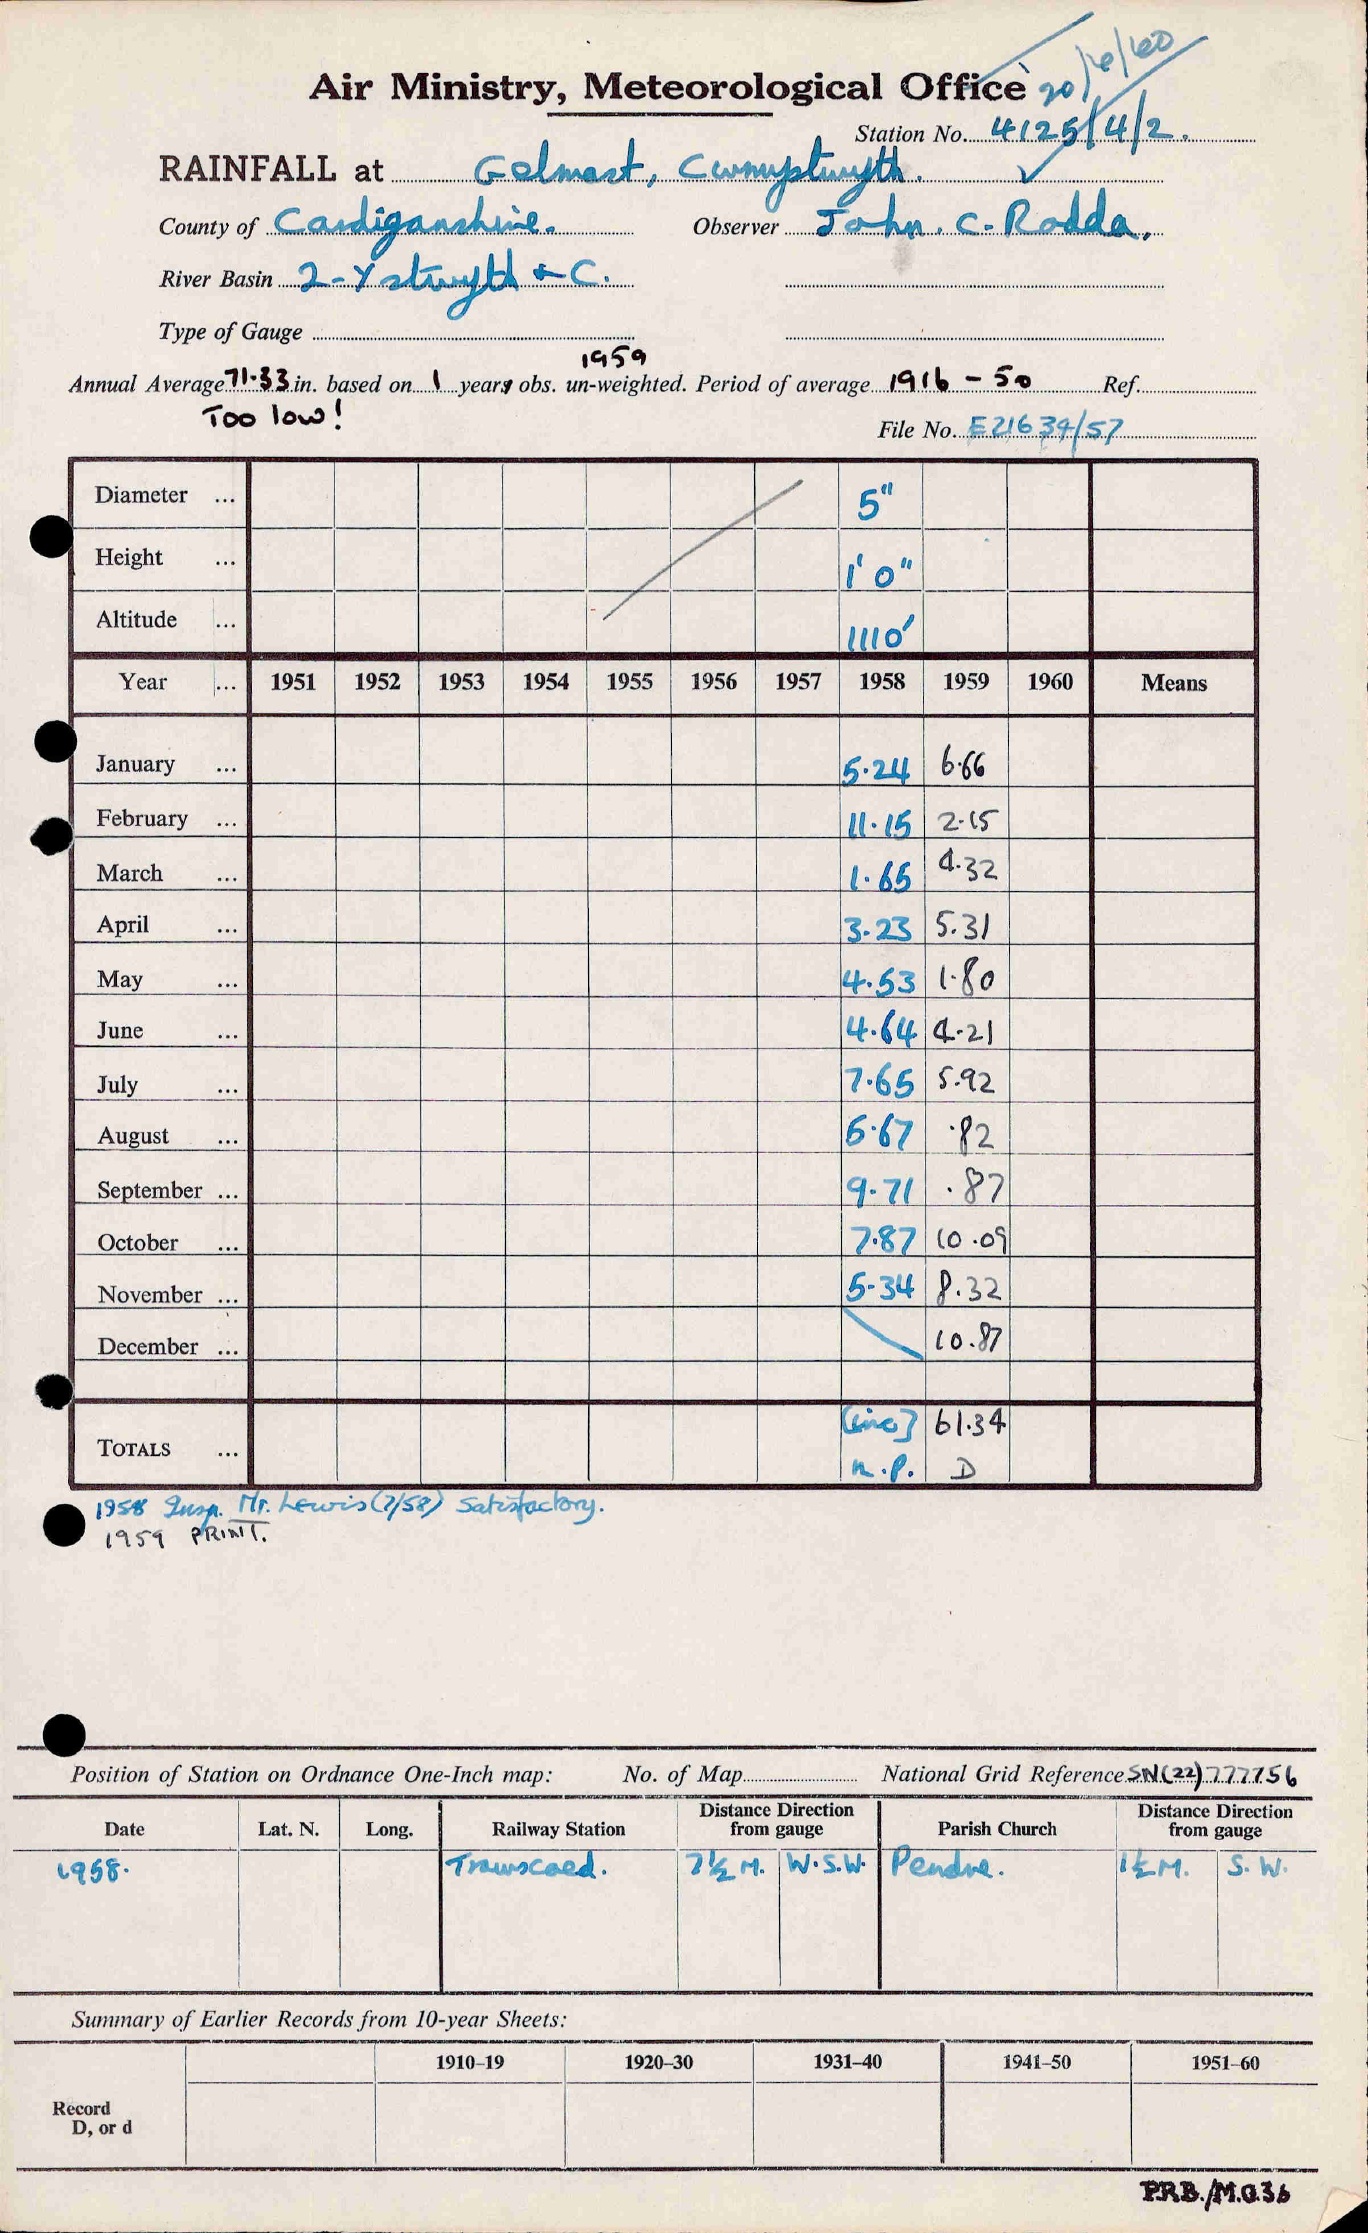 20/6/60
Air Ministry, Meteorological Office
Station No. 4125/4/2.
RAINFALL at Gelmast, Cwmystwyth.
County of Cardiganshire. Observer John. C. Rodda.
River Basin 2-Ystwyth & C.
Type of Gauge
1959
Annual Average 71.33 in. based on 1 years obs. un-weighted. Period of average 1916 - 50 Ref.
Too low!
File No. E21634/57
Diameter ... 5"
Height ... 1' 0"
Altitude ... 1110'
Year ... 1951 1952 1953 1954 1955 1956 1957 1958 1959 1960 Means
January ... 5.24 6.66
February ... 11.15 2.15
March ... 1.65 4.32
April ... 3.23 5.31
May ... 4.53 1.80
June ... 4.64 4.21
July ... 7.65 5.92
August ... 6.67 .82
September ... 9.71 .87
October ... 7.87 10.09
November ... 5.34 8.32
December ... 10.87
TOTALS ... [inc] 61.34
n.p. D
1958 Insp. Mr. Lewis (7/58) Satisfactory.
1959 PRINT.
Position of Station on Ordnance One-Inch map: No. of Map National Grid Reference SN(22)777756
Date Lat. N. Long. Railway Station Distance Direction from gauge Parish Church Distance Direction from gauge
1958. Trawscoed. 7½ M. W.S.W. 1½ M. S. W.
Summary of Earlier Records from 10-year Sheets:
1910–19 1920–30 1931–40 1941–50 1951–60
Record
D, or d
P.R.B./M.O.36